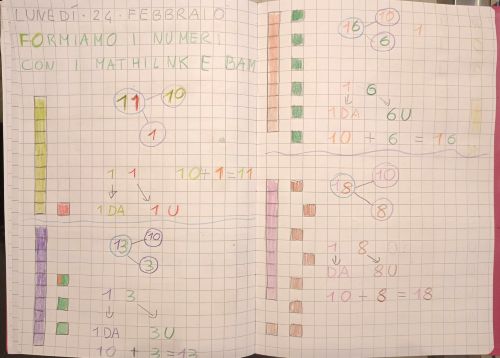 LUNEDÌ·24·FEBBRAIO
FORMIAMO I NUMERI
CON I MATHILNK E BAM
11 10
1
1 1 10+1=11
1DA 1U
13 10
3
1 3
1DA 3U
10 + 3=13
16 10
6
1
1 6
1DA 6U
10 + 6 = 16
18 10
8
1 8
DA 8U
10 + 8 = 18